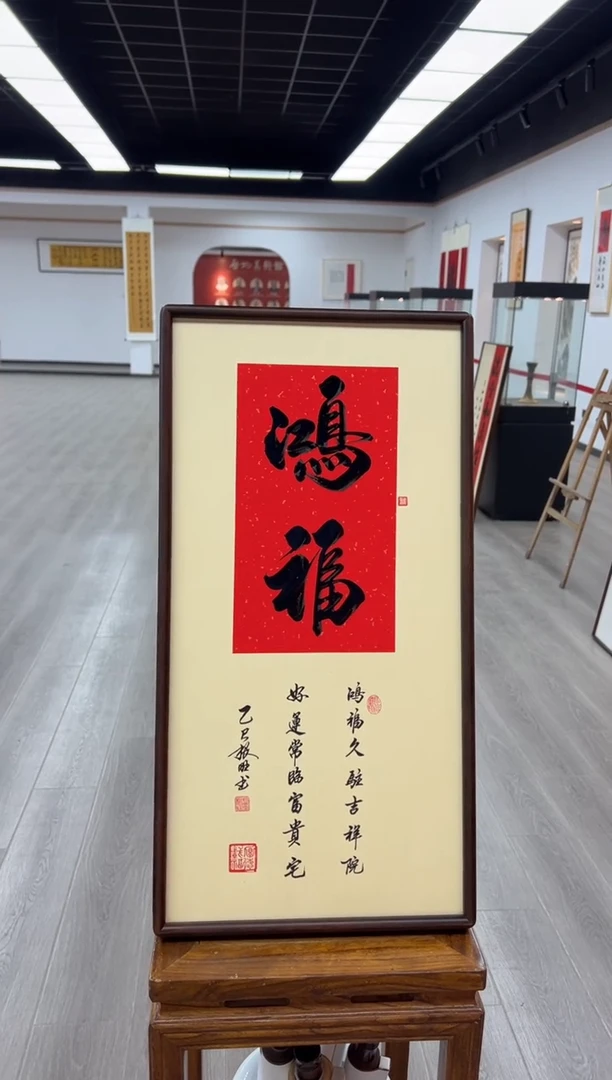 鴻福
鴻福久駐吉祥院
好運常臨富貴宅
乙巳振旺書